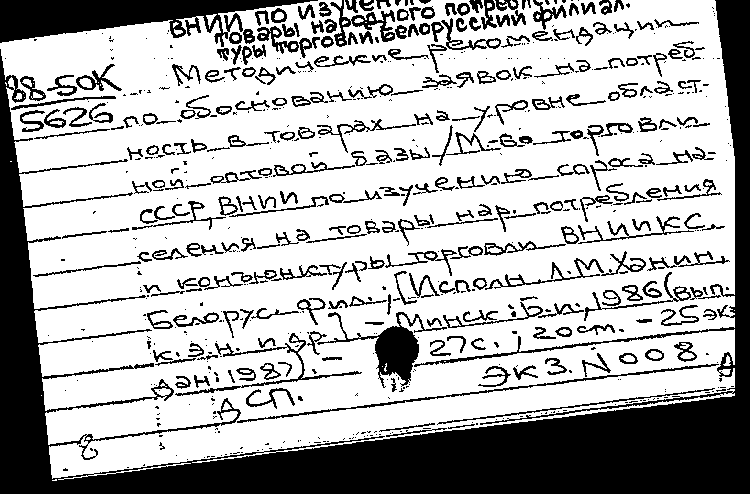 ВНИИ по изучению
товары народного потребле
туры торговли. Белорусский филиал.
88-50К Методические рекомендации
5626 по обоснованию заявок на потреб-
ность в товарах на уровне област-
ной оптовой базы / М-во торговли
СССР, ВНИИ по изучению спроса на-
селения на товары нар. потребления
и конъюнктуры торговли ВНИИКС,
Белорус. фил.; [Исполн. Л.М.Ханин,
к.э.н. и др.]. - Минск: Б.и., 1986 (вып.
дан: 1987). - 27с.; 20 см. - 25 экз
ДСП. ЭКЗ. N 008.
8